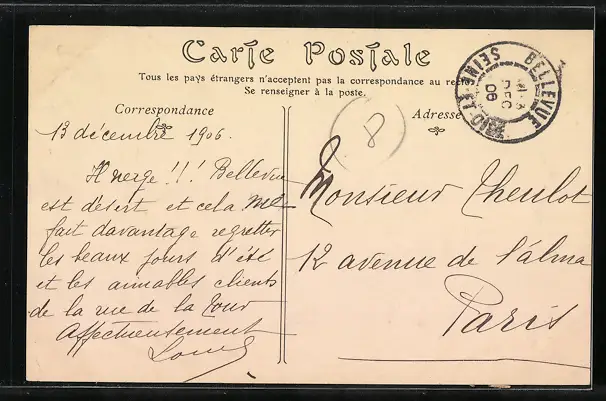 Carte Postale
Tous les pays étrangers n'acceptent pas la correspondance au
Se renseigner à la poste.
Correspondance
Adresse
BELLEVUE
SEINE
DEC
06
8
13 décembre 1906.
Il neige !!! Bellevue
est désert et cela me
fait davantage regretter
les beaux jours d'été
et les aimables clients
de la rue de la Tour
Affectueusement
Monsieur Theulot
12 avenue de l'alma
Paris